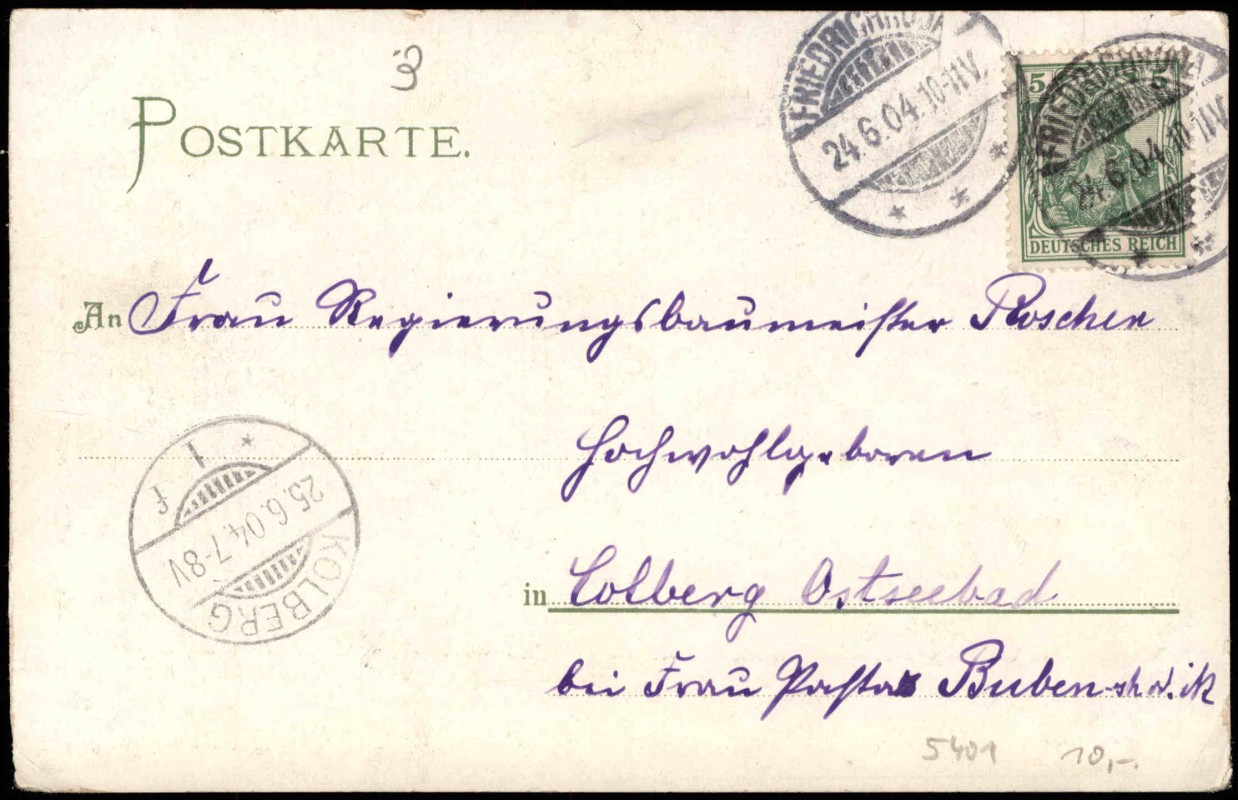 3
POSTKARTE.
FRIEDRICHRODA
24.6.04.10-11V.
5 5
DEUTSCHES REICH
FRIEDRICHRODA
24.6.04.10-11V.
An Frau Regierungsbaumeister Roscher
Hochwohlgeboren
1 f
25.6.04.7-8V
KOLBERG
in Colberg Ostseebad
bei Frau Pastor
5401 10,-